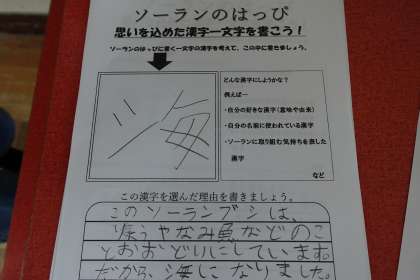 ソーランのはっぴ
思いを込めた漢字一文字を書こう！
ソーランのはっぴに書く一文字の漢字を考えて、この中に書きましょう。
海
どんな漢字にしようかな？
例えば…
・自分の好きな漢字（意味や由来）
・自分の名前に使われている漢字
・ソーランに取り組む気持ちを表した
漢字
など
この漢字を選んだ理由を書きましょう。
このソーランブシは、
りょうやなみ魚などのこ
とおおどいにしています。
だから海になりました。